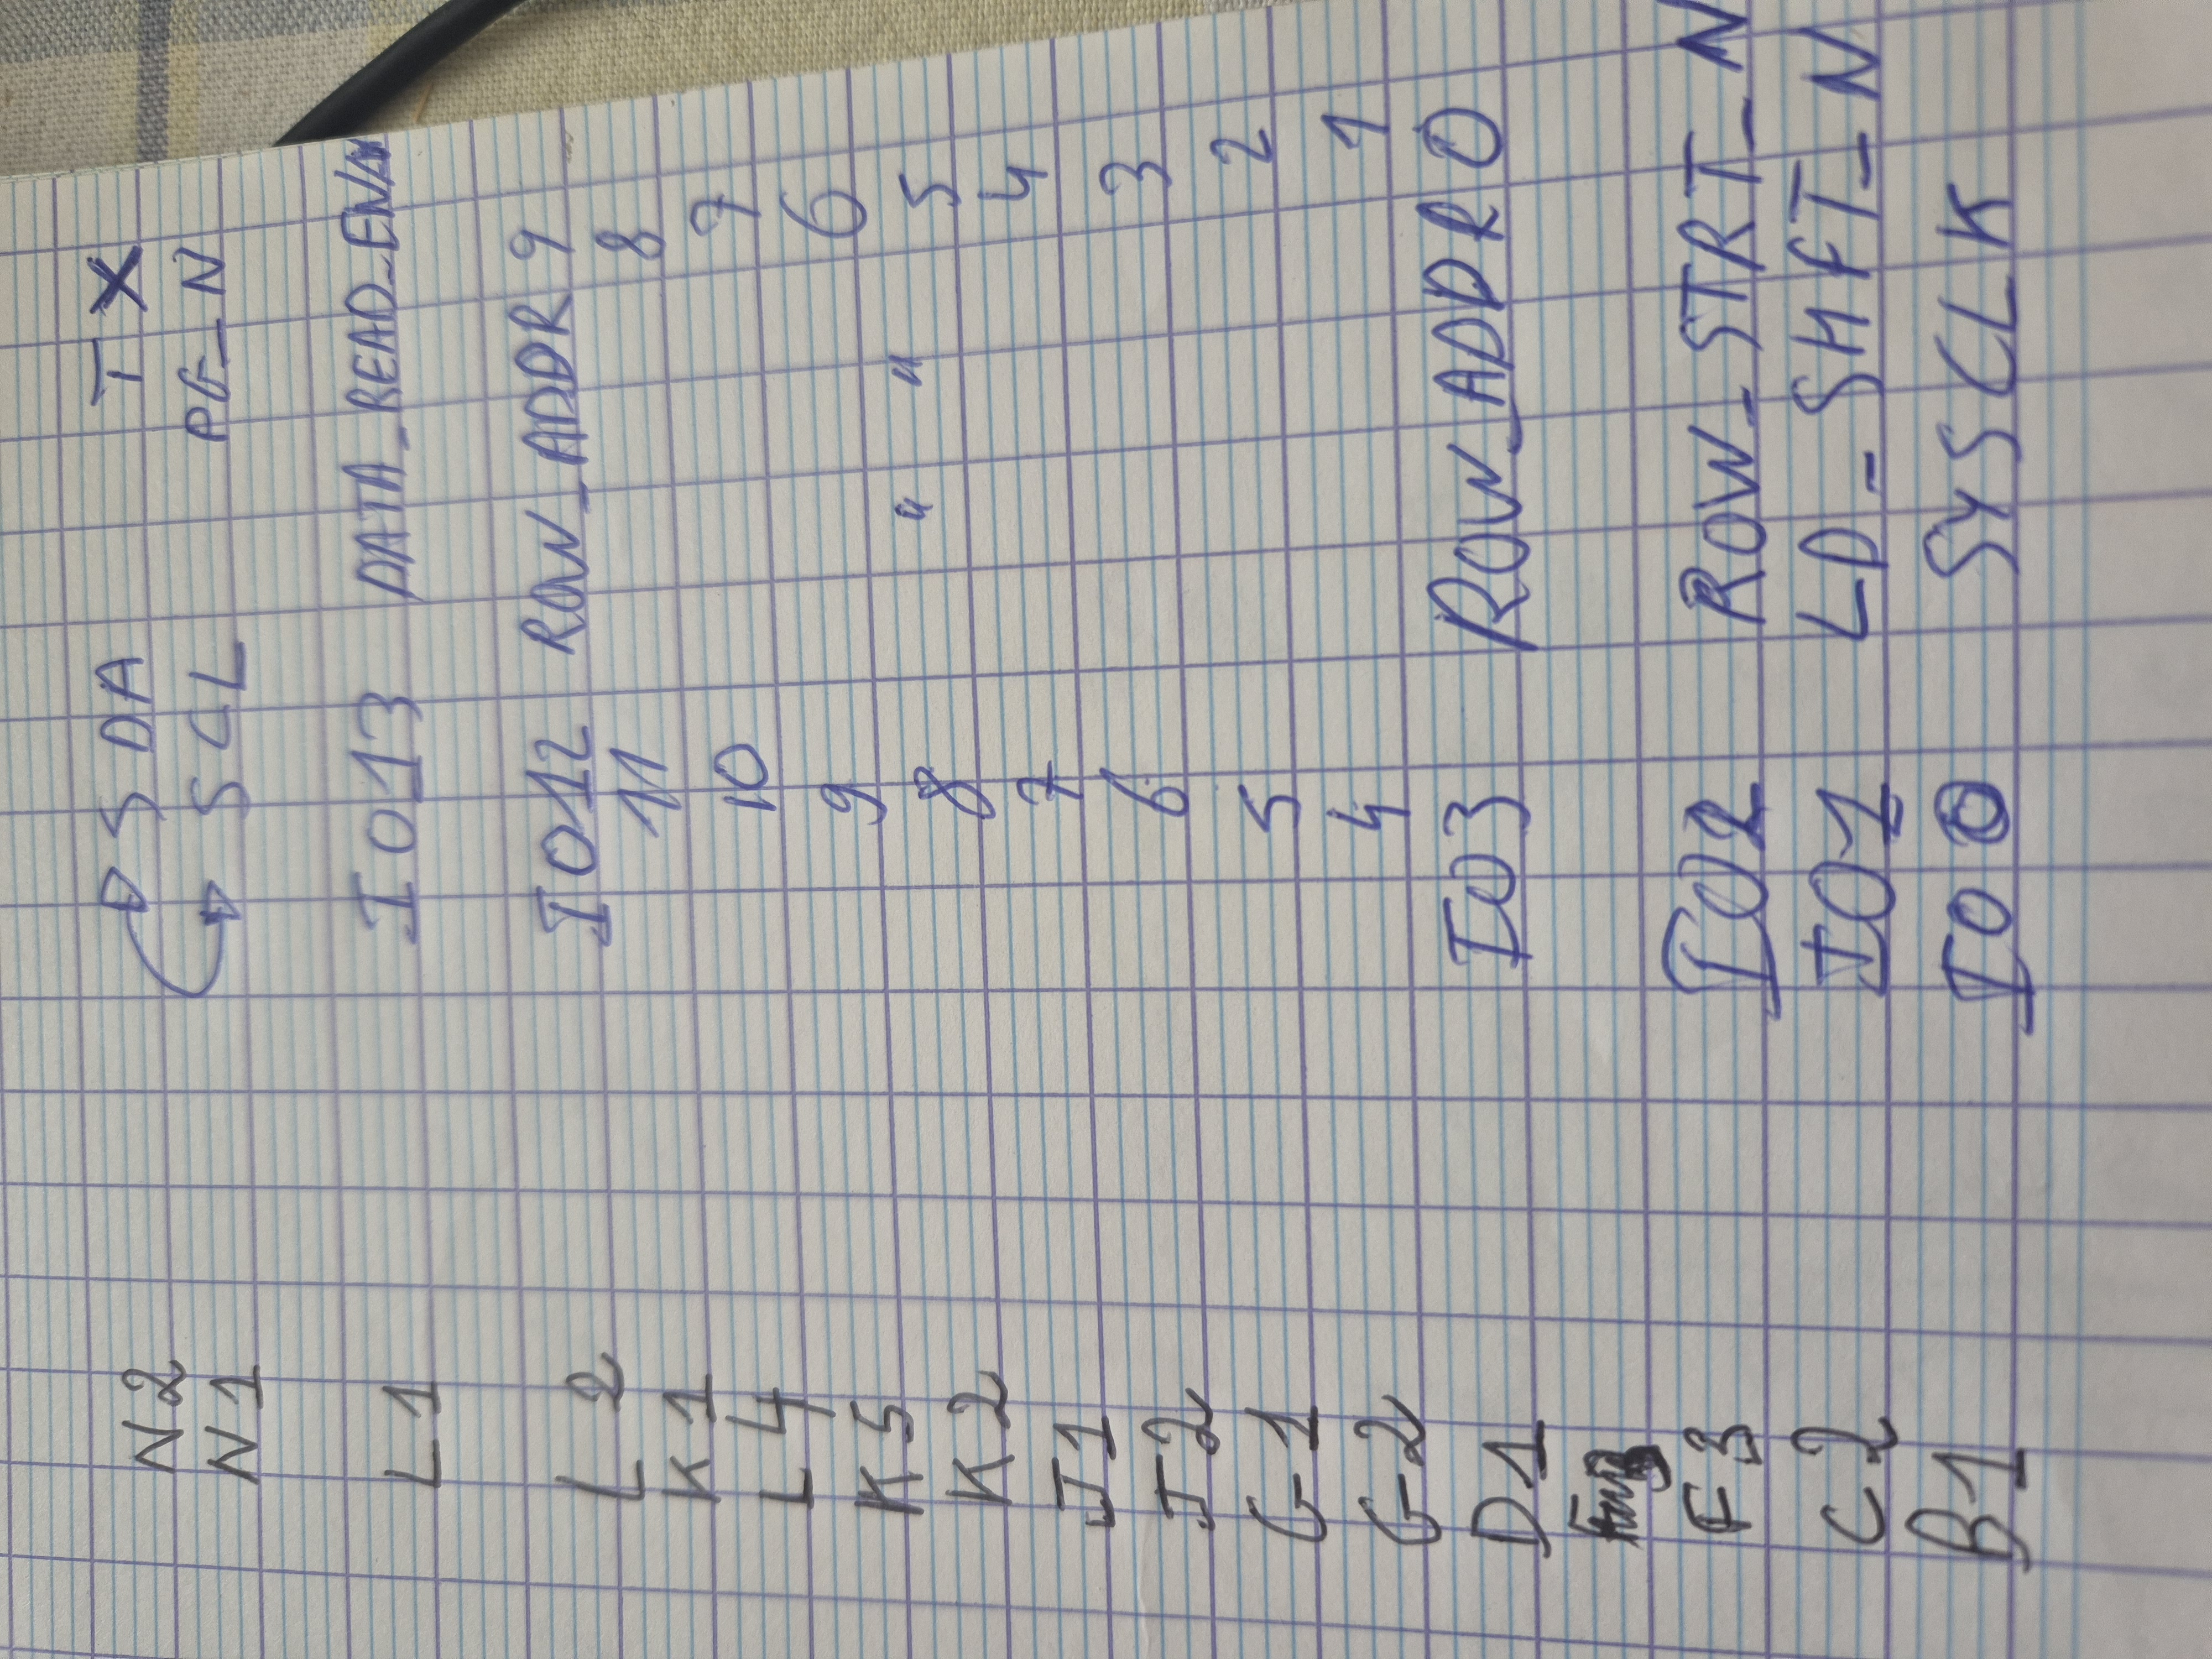 N2 SDA TX
N1 SCL PG_N
L1 IO13 DATA_READ_ENA
L2 IO12 ROW_ADDR 9
K1 11 8
L4 10 7
K5 9 6
K2 8 " " 5
J1 7 4
J2 6 3
G1 5 2
G2 4 1
D1 IO3 ROW_ADDR 0
F3 IO2 ROW_STRT_N
C2 IO1 LD_SHFT_N
B1 IO0 SYSCLK